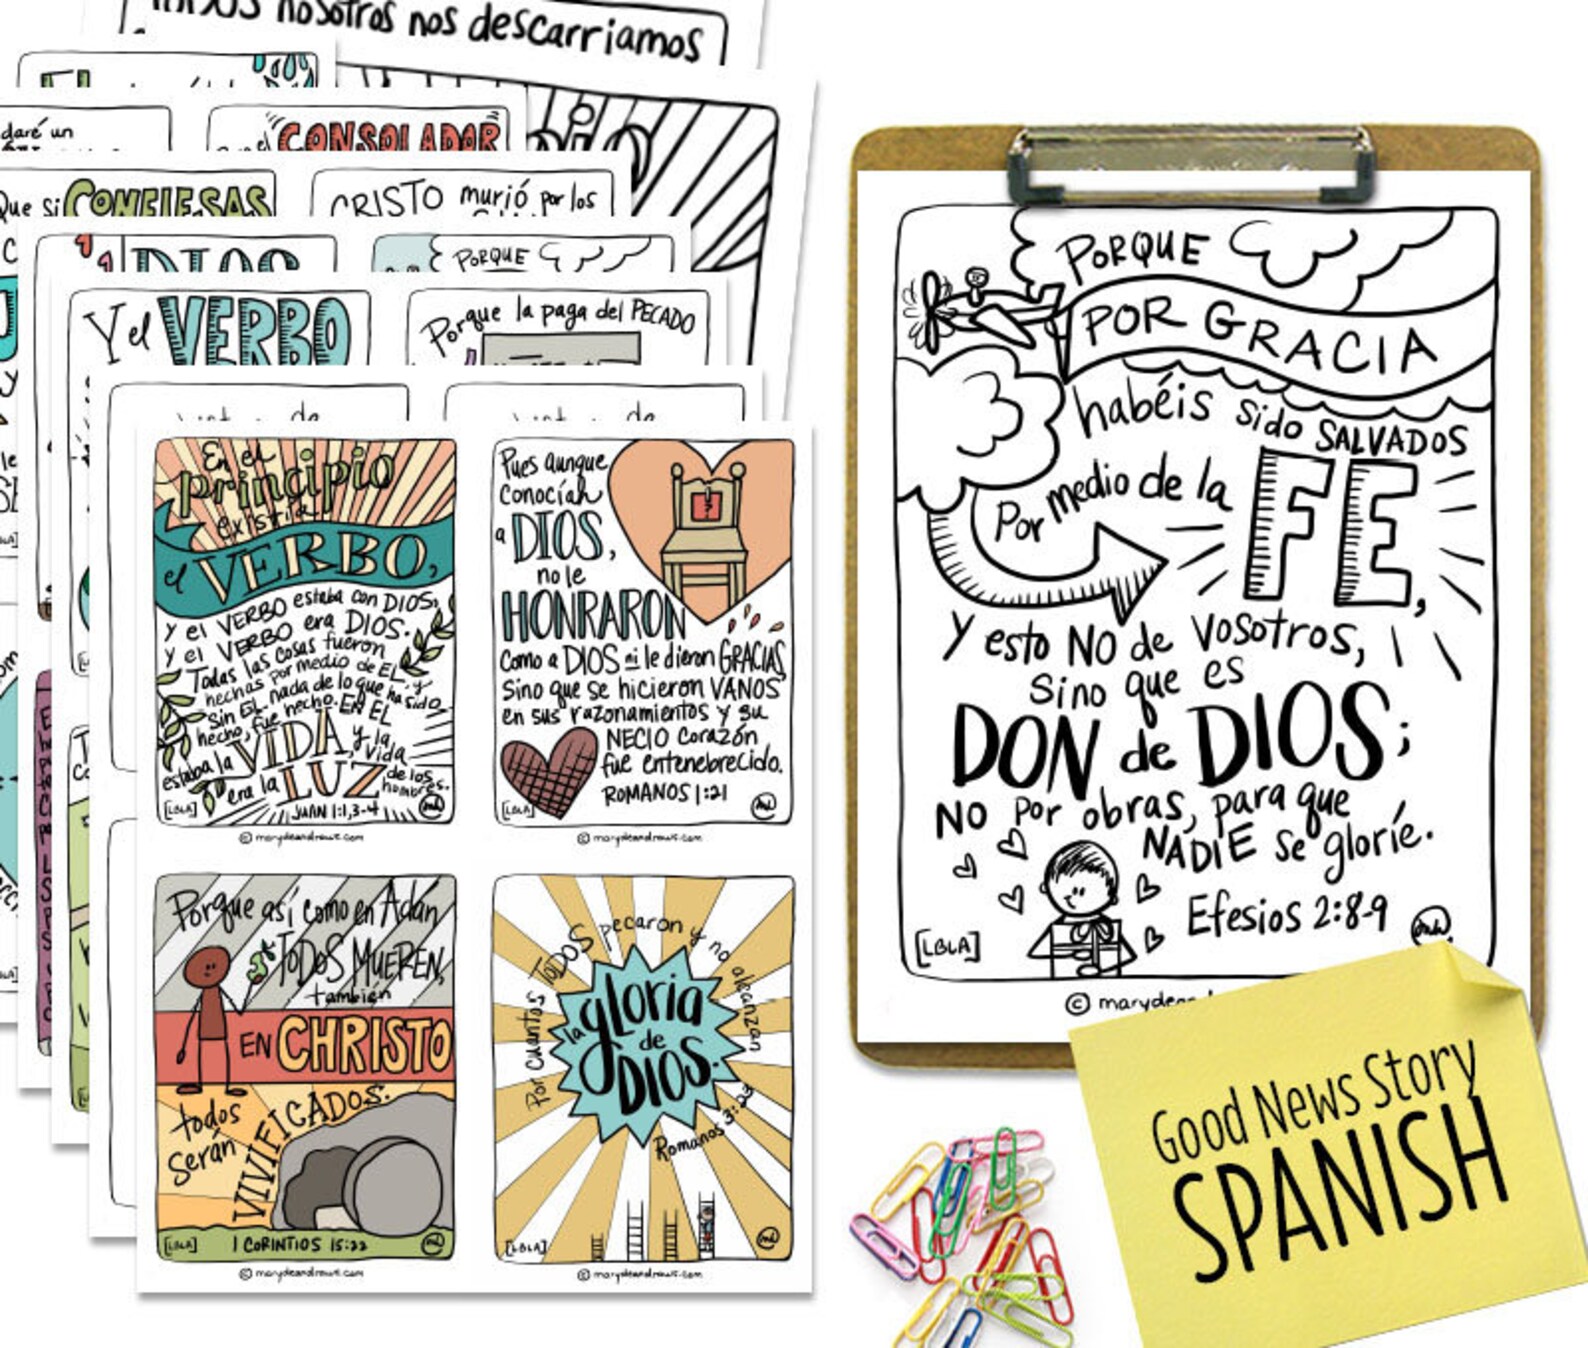 nosotros nos descarriamos
daré un
CONSOLADOR
Que si CONFIESAS
CRISTO murió por los
DIOS
PORQUE
Y el VERBO
Porque la paga del PECADO
En el
principio
existía
el VERBO,
y el VERBO estaba con DIOS,
y el VERBO era DIOS.
Todas las cosas fueron
hechas por medio de ÉL, y
sin ÉL nada de lo que ha sido
hecho, fue hecho. EN ÉL
estaba la VIDA, y la vida
era la LUZ de los hombres.
[LBLA]
JUAN 1:1,3-4
© marydeandraws.com
Pues aunque
conocían
a DIOS,
no le
HONRARON
como a DIOS ni le dieron GRACIAS
sino que se hicieron VANOS
en sus razonamientos y su
NECIO corazón
fue entenebrecido.
ROMANOS 1:21
[LBLA]
© marydeandraws.com
Porque así como en Adán
TODOS MUEREN,
también
EN CHRISTO
todos
serán
VIVIFICADOS.
[LBLA]
1 CORINTIOS 15:22
© marydeandraws.com
Por cuanto TODOS pecaron y no alcanzan
la gloria
de
DIOS.
Romanos 3:23
[LBLA]
© marydeandraws.com
PORQUE
POR GRACIA
habéis sido SALVADOS
Por medio de la
FE,
Y esto NO de vosotros,
sino que es
DON de DIOS;
NO por obras, para que
NADIE se gloríe.
Efesios 2:8-9
[LBLA]
Good News Story
SPANISH